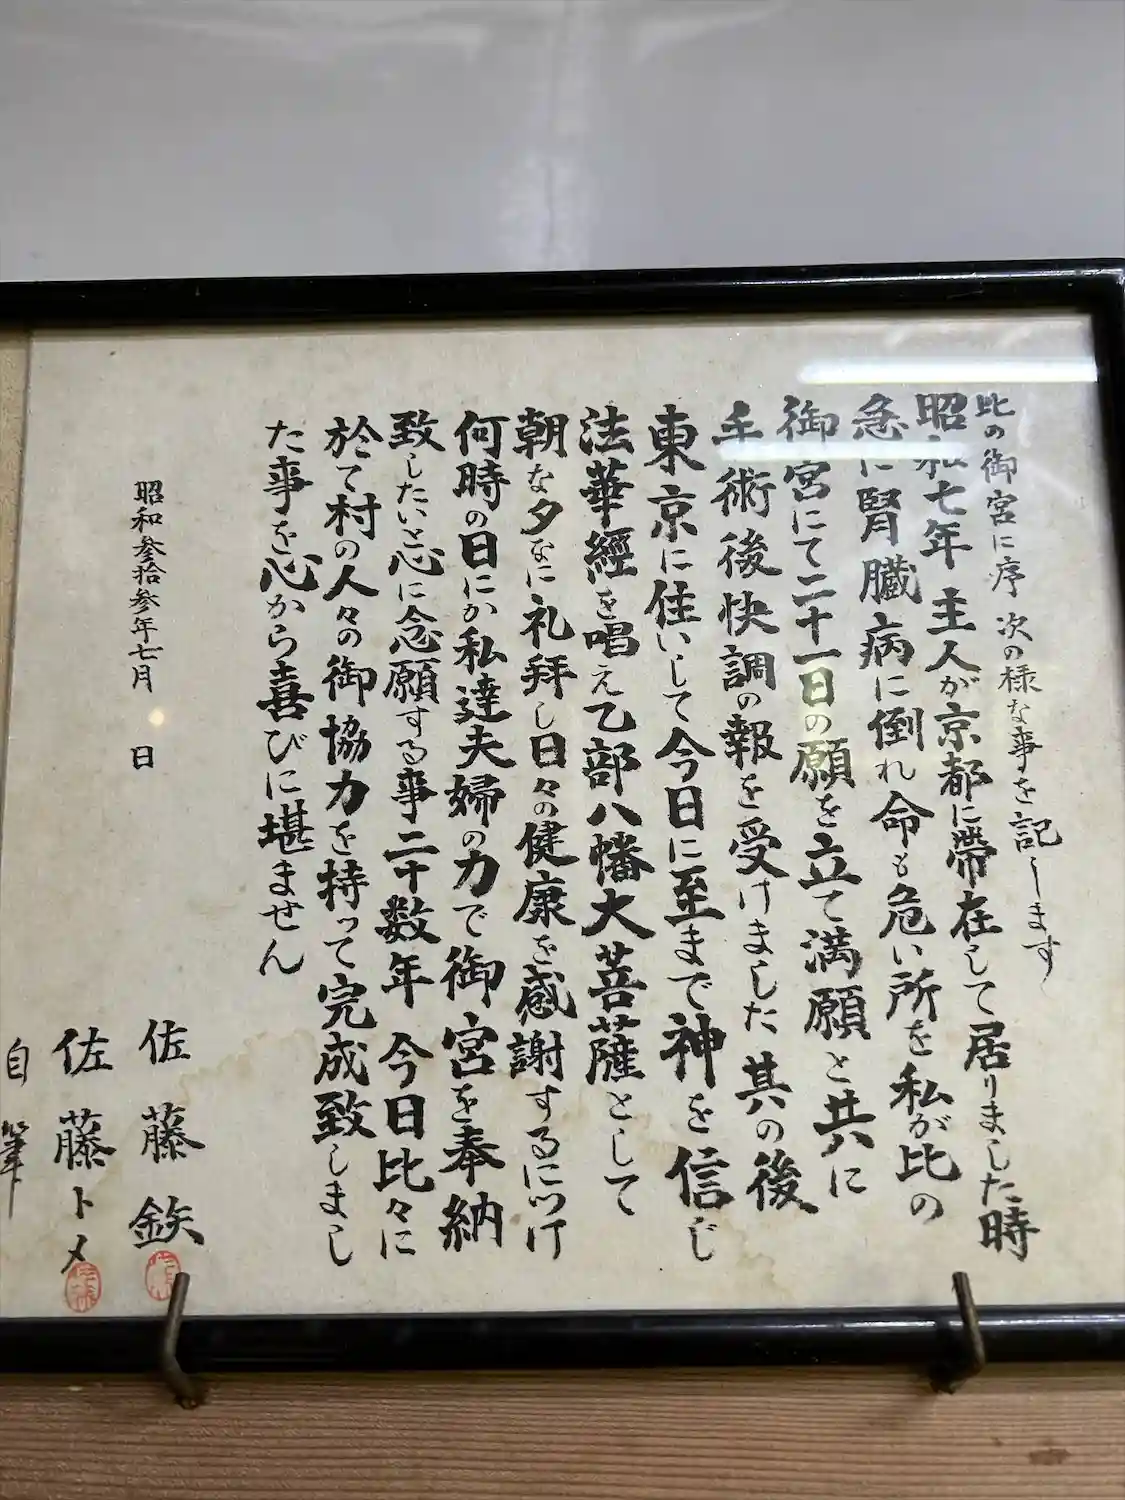 比の御宮に序 次の様な事を記します
昭和七年 主人が京都に滞在して居りました時
急に腎臓病に倒れ命も危い所を私が比の
御宮にて二十一日の願を立て満願と共に
手術後快調の報を受けました 其の後
東京に住いして今日に至まで神を信じ
法華經を唱え乙部八幡大菩薩として
朝な夕なに礼拜し日々の健康を感謝するにつけ
何時の日にか私達夫婦の力で御宮を奉納
致したいと心に念願する事二十数年 今日比々に
於て村の人々の御協力を持って完成致しまし
た事を心から喜びに堪ません
昭和参拾参年七月 日
佐藤鉃
佐藤トメ
自筆